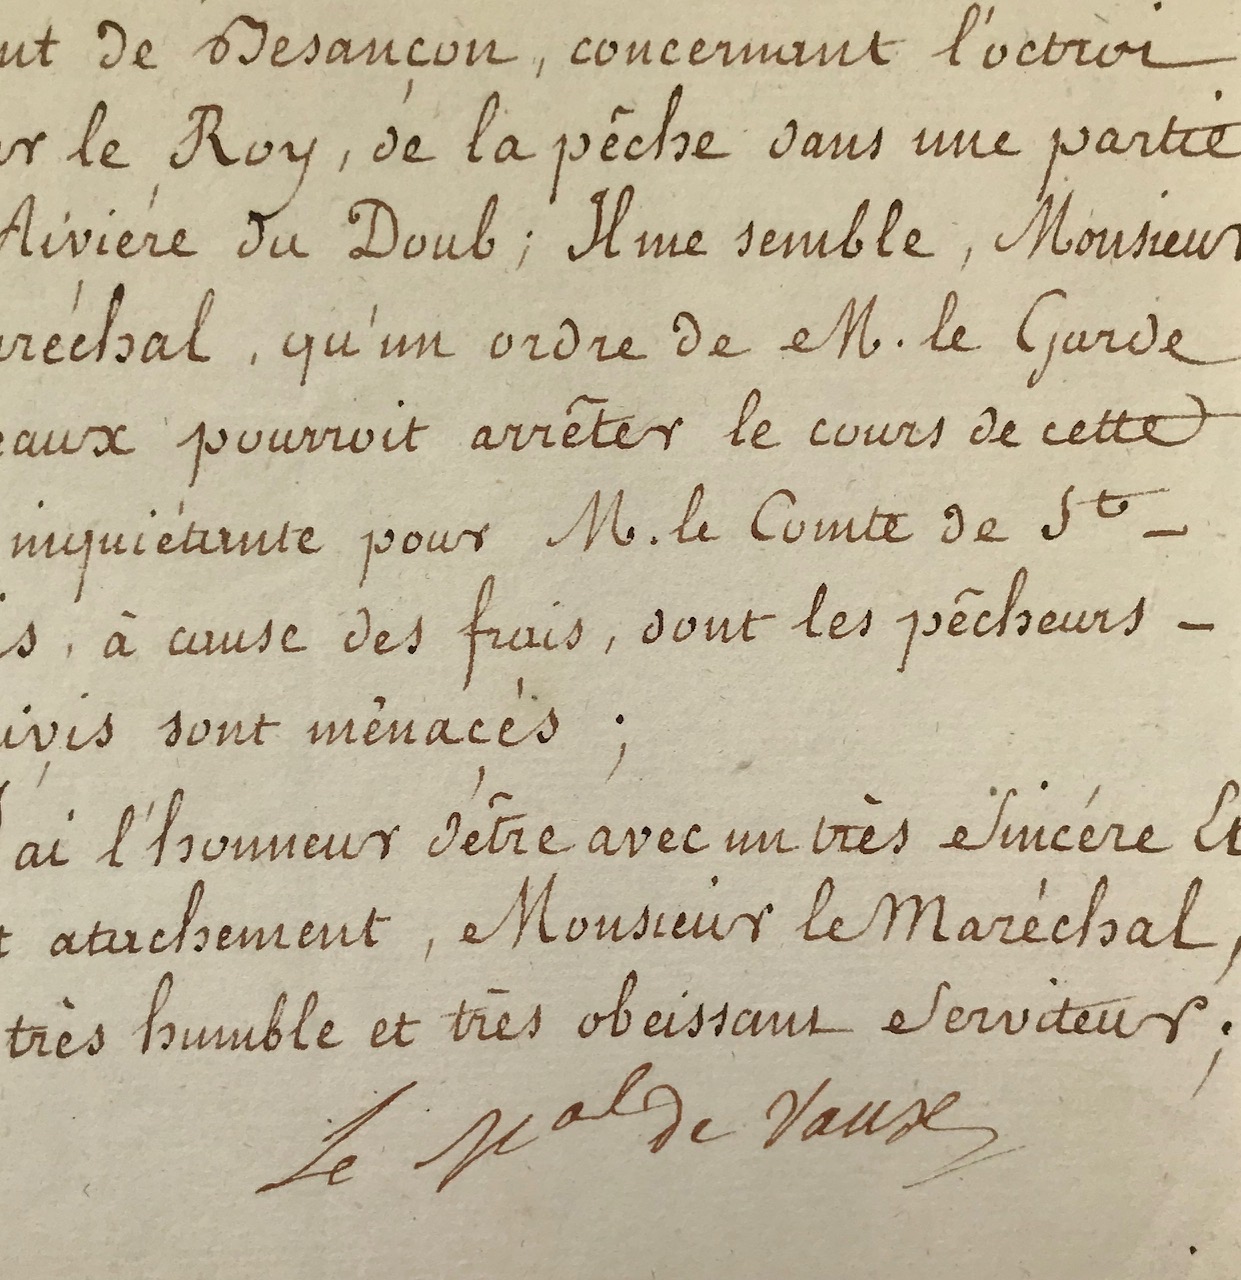 nt de Besançon, concernant l'octroi
r le Roy, de la pêche dans une partie
Riviére du Doub; Il me semble, Monsieur
réchal, qu'un ordre de M. le Garde
eaux pourroit arrêter le cours de cette
inquiétante pour M. le Comte de St. -
is, à cause des frais, dont les pêcheurs -
ivis sont ménacés ;
J'ai l'honneur d'être avec un très Sincére Et
t attachement, Monsieur le Maréchal,
très humble et très obeissant Serviteur;
Le Mal de Vaux